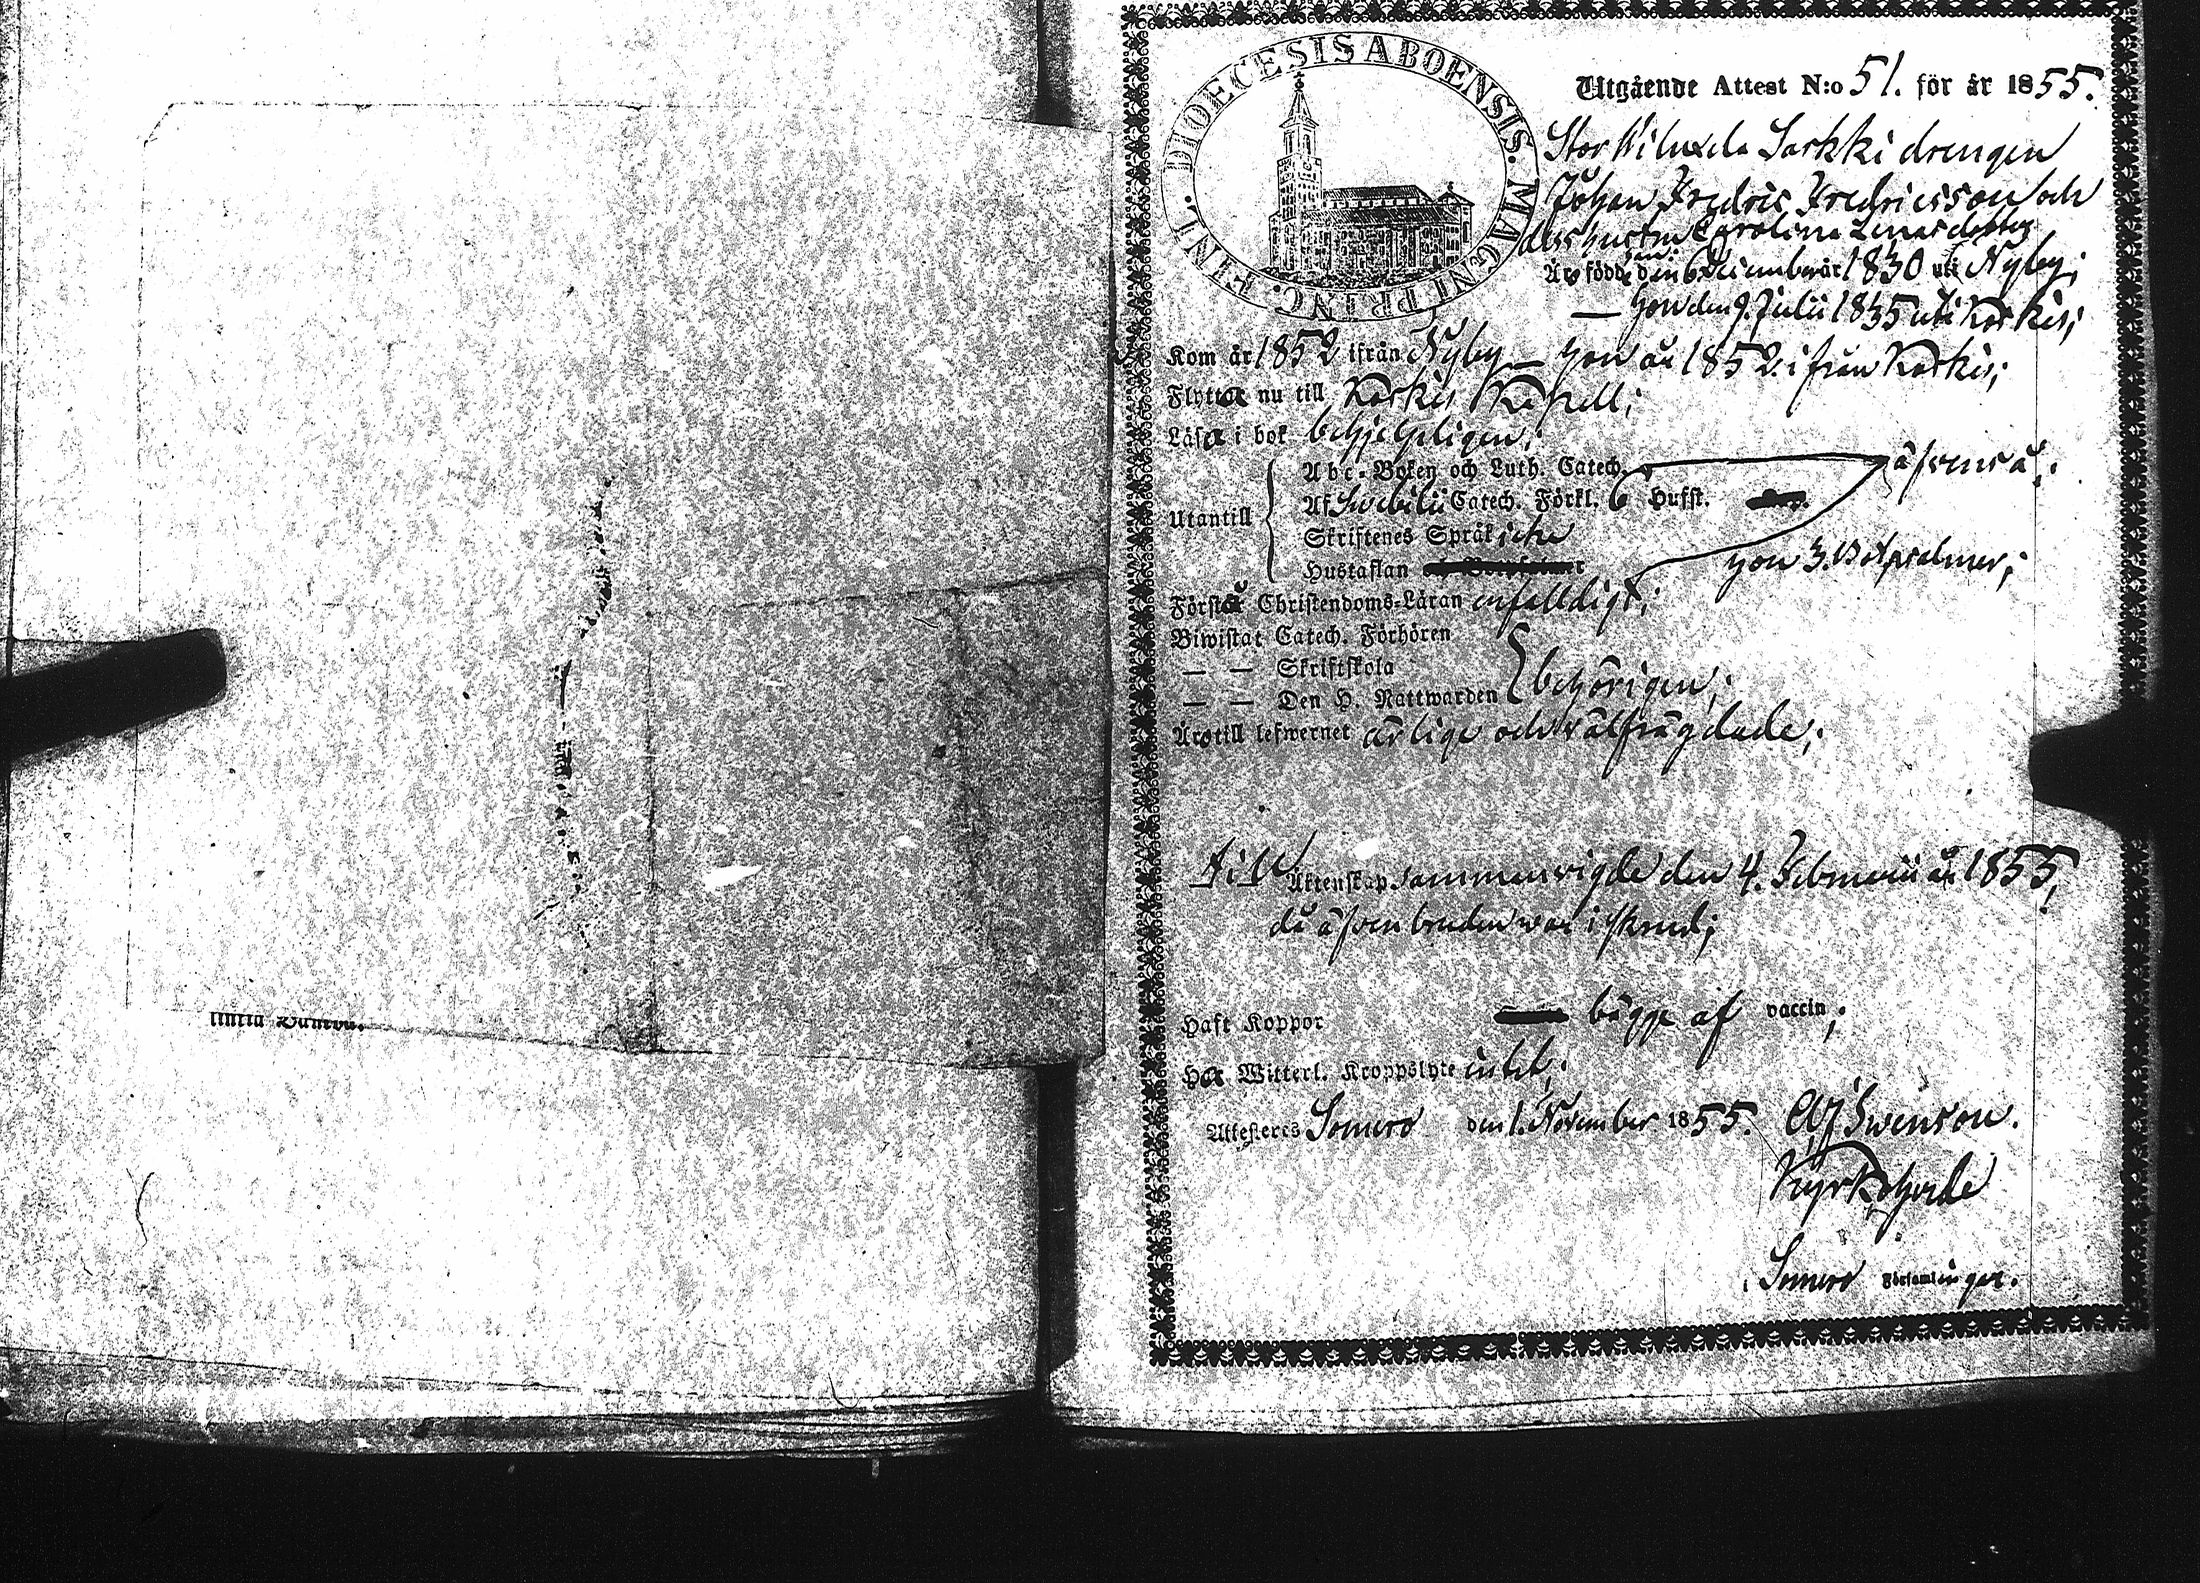 DIOECESIS ABOENSIS. MAGNI PRINC. FINL.
Utgående Attest N:o 51. för år 1855.
Stor Wiluxela Sarkki drengen
Johan Fredric Fredricsson och
dess hustru Carolina Lenasdotter
Äro födde han den 6 December år 1830 uti Nyby;
— hon den 9. Julii 1835 uti Koskis;
Kom år 1852 ifrån Nyby — hon år 1852. ifrån Koskis;
Flyttar nu till Koskis Kapell;
Läsa i bok behjelpligen;
Utantill
Abc-Boken och Luth. Catech.
äfvenså;
Af Swebilii Catech. Förkl. 6 Hufst.
Skriftenes Språk icke
Hustaflan
hon 3. Botpsalmer;
Förstå Christendoms-Läran enfalldigt;
Biwistat Catech. Förhören
— — Skriftskola
— — Den H. Nattwarden behörigen;
Äro till lefwernet ärlige och välfrägdade;
till Äktenskap sammanvigde den 4. Februarii år 1855,
då äfven bruden var i skrud;
Haft Koppor bägge af vaccin;
Ha Witterl. Kroppslyte intet;
Attesteres Somero den 1. November 1855.
Swenson.
Kyrkoherde
Somero Församlingar.